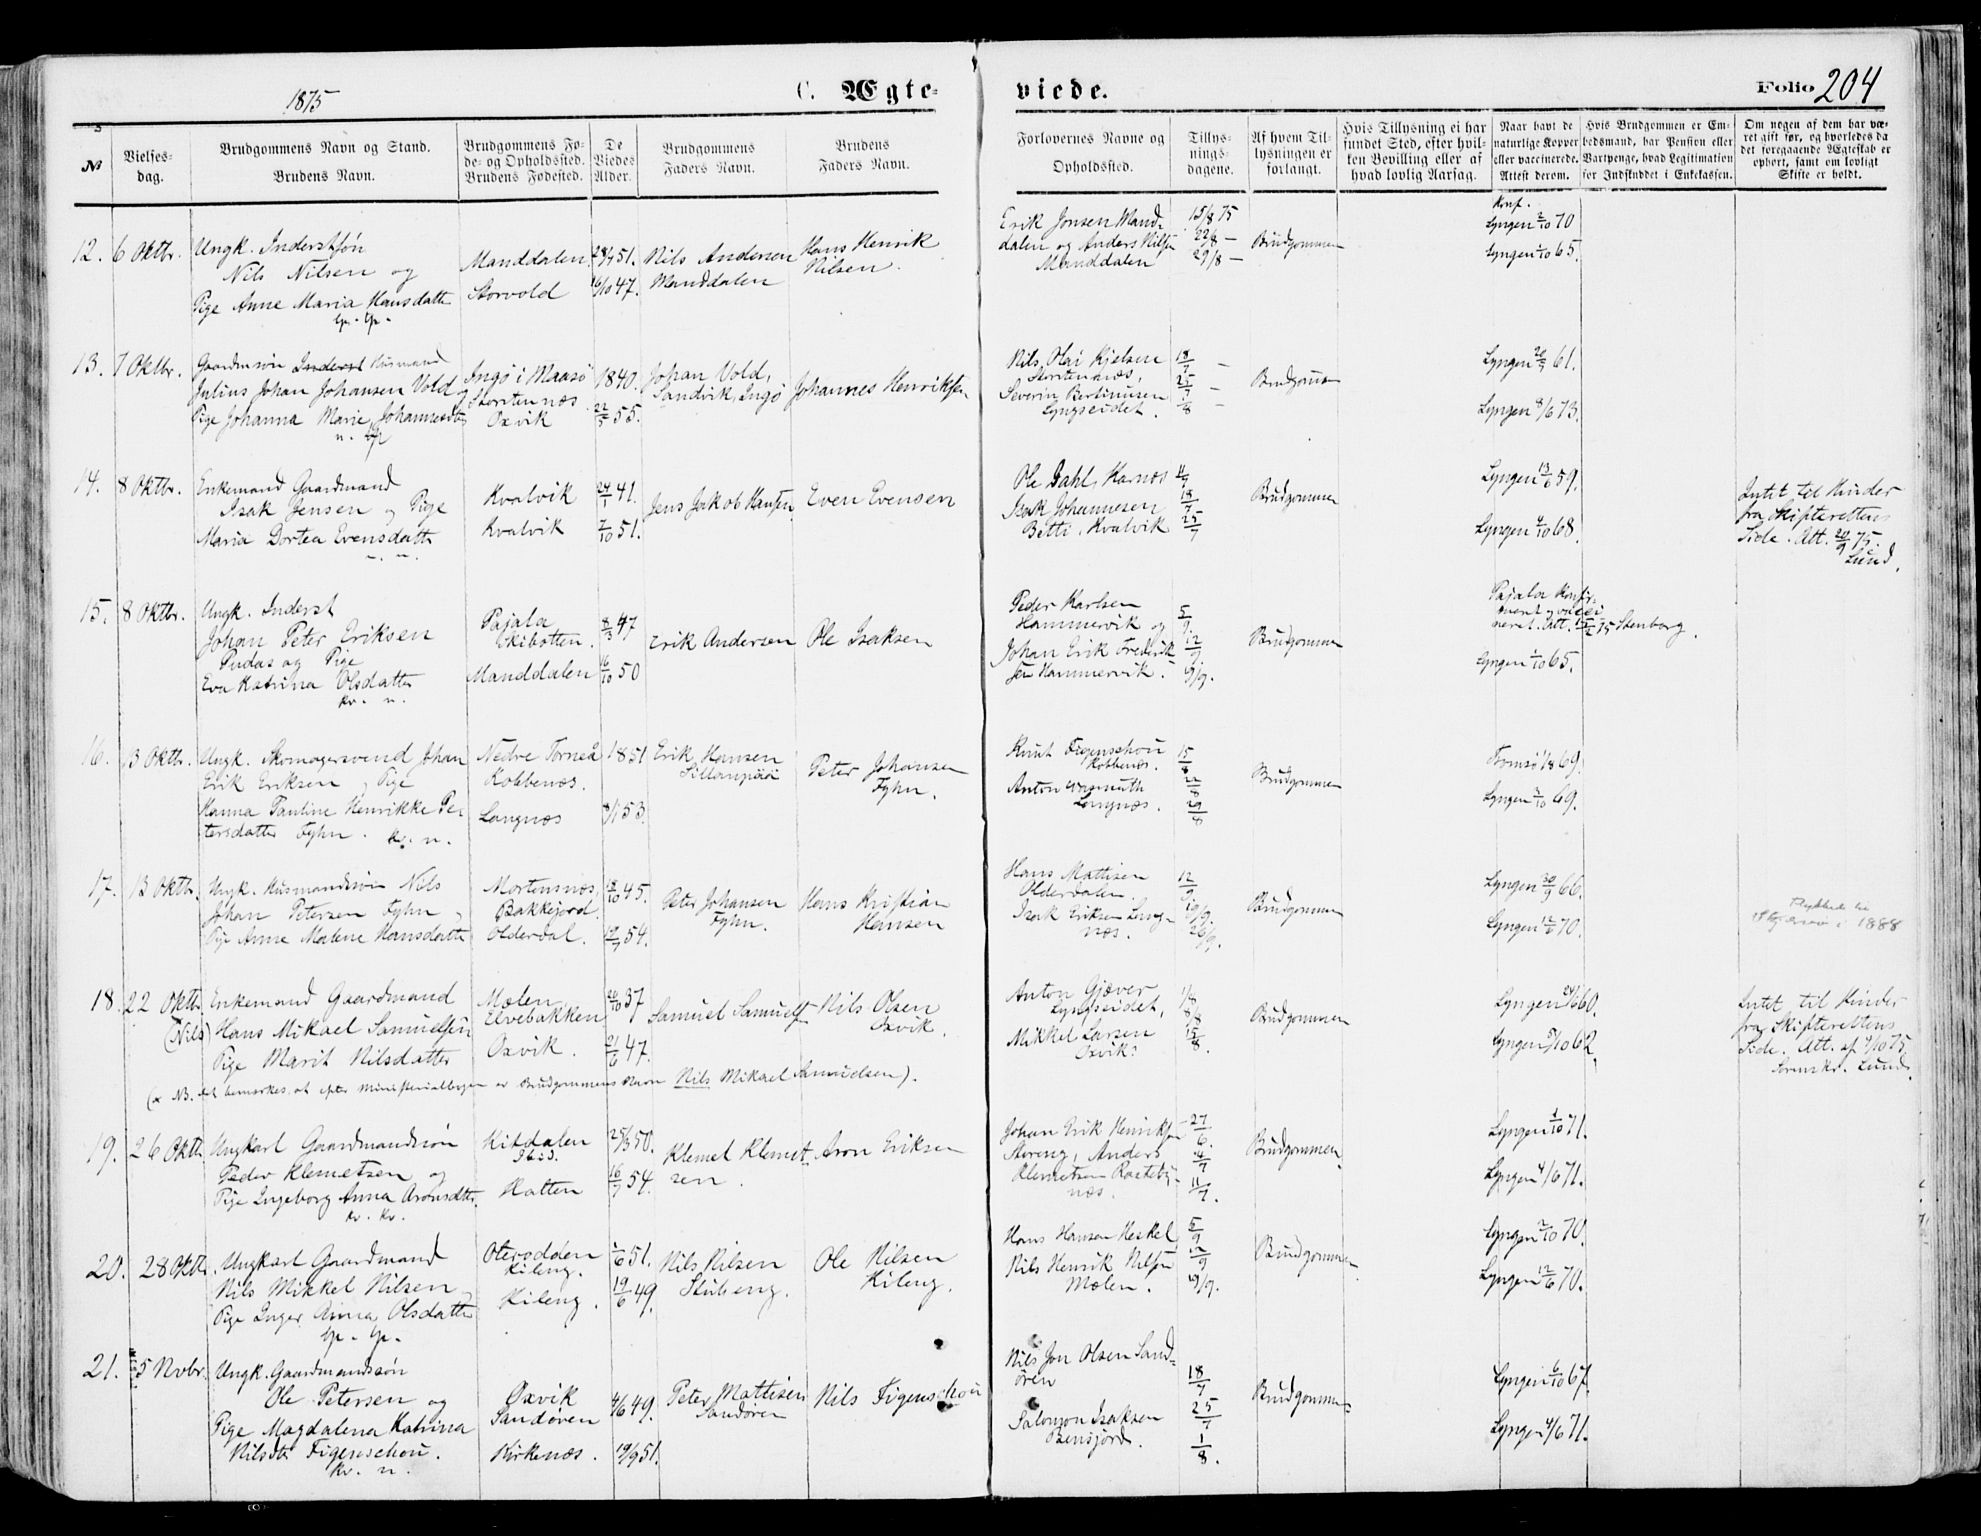 1875
C. Ægte-
viede.
Folio 204
№
Vielses-
dag.
Brudgommens Navn og Stand.
Brudens Navn.
Brudgommens Fø-
de- og Opholdssted.
Brudens Fødested.
De
Viedes
Alder.
Brudgommens
Faders Navn.
Brudens
Faders Navn.
Forlovernes Navne og
Opholdssted.
Tillys-
nings-
dagene.
Af hvem Til-
lysningen er
forlangt.
Hvis Tillysning ei har
fundet Sted, efter hvil-
ken Bevilling eller af
hvad lovlig Aarsag.
Naar havt de
naturlige Kopper
eller vaccinerede.
Attest derom.
Hvis Brudgommen er Em-
bedsmand, har Pension eller
Vartpenge, hvad Legitimation
for Indskuddet i Enkekassen.
Om nogen af dem har væ-
ret gift før, og hvorledes da
det foregaaende Ægteskab er
ophørt, samt om lovligt
Skifte er holdt.
12. 6 Oktbr.
Ungk. Inderstsøn
Nils Nilsen og
Pige Anne Maria Hansdatter
Manddalen
Storvold
28/7 51.
16/10 47.
Nils Andersen
Manddalen
Hans Henrik
Nilsen.
Erik Jonsen Mand-
dalen og Anders Nilsen
Manddalen
15/8 75
22/8 –
29/8 –
Brudgommen
Konf.
Lyngen 2/10 70
Lyngen 1/10 65.
13. 7 Oktbr.
Gaardmsøn Inderst Husmand
Julius Johan Johansen Vold og
Pige Johanna Marie Johannesdtr
Ingø i Maasø
Storstennæs
Oxvik
1840.
22/5 55.
Johan Vold,
Sandvik, Ingø
Johannes Henriksen
Nils Olai Kjelsen
Storstennæs,
Severin Bertinusen
Lyngseidet.
18/7 –
25/7 –
1/8 –
Brudgommen
Lyngen 20/9 61.
Lyngen 8/6 73.
14. 8 Oktbr.
Enkemand Gaardmand
Isak Jensen og Pige
Maria Dortea Evensdatter
Kvalvik
Kvalvik
24/1 41.
7/10 51.
Jens Jakob Hansen
Even Evensen
Ole Dahl, Karnæs
Isak Johannesen
Betti, Kvalvik
11/7
18/7
25/7
Brudgommen
Lyngen 13/6 59.
Lyngen 4/10 68.
Intet til Hinder
fra Skifterettens
Side. Att. 20/9 75.
Lund.
15. 8 Oktbr.
Ungk. Inderst
Johan Peter Eriksen
Pudas og Pige
Eva Katrina Olsdatter
Pajala
Skibotten.
Manddalen
8/3 47
16/10 50
Erik Andersen
Ole Isaksen
Peder Karlsen
Hammervik og
Johan Erik Fredrik-
sen Hammervik.
5/9
12/9
19/9.
Brudgommen
Pajala Konfir-
meret og vacci
neret. Att. 15/2 75 Stenborg.
Lyngen 1/10 65.
16. 13 Oktbr.
Ungk. Skomagersvend Johan
Erik Eriksen og Pige
Hanna Pauline Henrikke Pe-
tersdatter Fyhn.
Nedre Torneå
Kobbenæs.
Langnæs
1851
8/1 53.
Erik Hansen
Sillanpää
Peter Johansen
Fyhn.
Knut Figenschou
Kobbenæs.
Anton Wasmuth
Langnæs.
15/8
22/8
29/8
Brudgommen
Tromsø 1/8 69.
Lyngen 3/10 69.
17. 13 Oktbr.
Ungk. Husmandssøn Nils
Johan Petersen Fyhn og
Pige Anne Malene Hansdatter
Mortensnæs,
Bakkejord.
Olderdal.
18/10 45.
19/7 54.
Peter Johansen
Fyhn.
Hans Kristian
Hansen
Hans Mattisen
Olderdalen.
Isak Eriksen Lang-
næs.
12/9
19/9.
26/9.
Brudgommen
Lyngen 30/9 66.
Lyngen 12/6 70.
Flyttede til
Skjærvø i 1888
18. 22 Oktbr.
Enkemand Gaardmand
(Nils) Hans Mikael Samuelsen
Pige Marit Nilsdatter
Mælen
Elvebakken
Oxvik.
20/10 37
21/6 47.
Samuel Samuelsen
Nils Olsen
Oxvik.
Anton Gjæver
Lyngseidet,
Mikkel Larsen
Oxvik
1/8
8/8
15/8.
Brudgommen
Lyngen 24/6 60.
Lyngen 5/10 62.
Intet til Hinder
fra Skifterettens
Side. Att. af 4/10 75.
Sorenskr. Lund.
(x NB. det bemærkes, at efter Ministerialbogen er Brudgommens Navn Nils Mikael Samuelsen).
19. 26 Oktbr.
Ungkarl Gaardmandssøn
Peder Klemetsen og
Pige Ingeborg Anna Aronsdtr.
Kitdalen
Ibid.
Hatten
25/3 50.
16/7 54.
Klemet Klemet-
sen.
Aron Eriksen
Johan Erik Henriksen
Storeng, Anders
Klemetsen Rasteby-
næs.
27/6.
4/7
11/7.
Brudgommen
Lyngen 1/10 71.
Lyngen 4/6 71.
20. 28 Oktbr.
Ungkarl Gaardmand
Nils Mikkel Nilsen
Pige Inger Anna Olsdatter
Otersdøen
Kileng.
Kileng.
1/6 51.
19/6 49.
Nils Nilsen
Ole Nilsen
Kileng.
Hans Hansen Heskel
Nils Henrik Nilsen
Mælen.
5/9
12/9
19/9.
Brudgommen
Lyngen 2/10 70.
Lyngen 12/6 70.
21. 5 Novbr.
Ungk. Gaardmandssøn
Ole Petersen og
Pige Magdalena Katrina
Nilsdtr Figenschou.
Oxvik
Sandøren
Kirkenæs.
4/6 49.
19/9 51.
Peter Mattisen
Sandøren
Nils Figenschou
Nils Jon Olsen Sand-
ören
Salomon Isaksen
Bensjord.
18/7
25/7
1/8.
Brudgommen
Lyngen 6/10 67.
Lyngen 4/6 71.